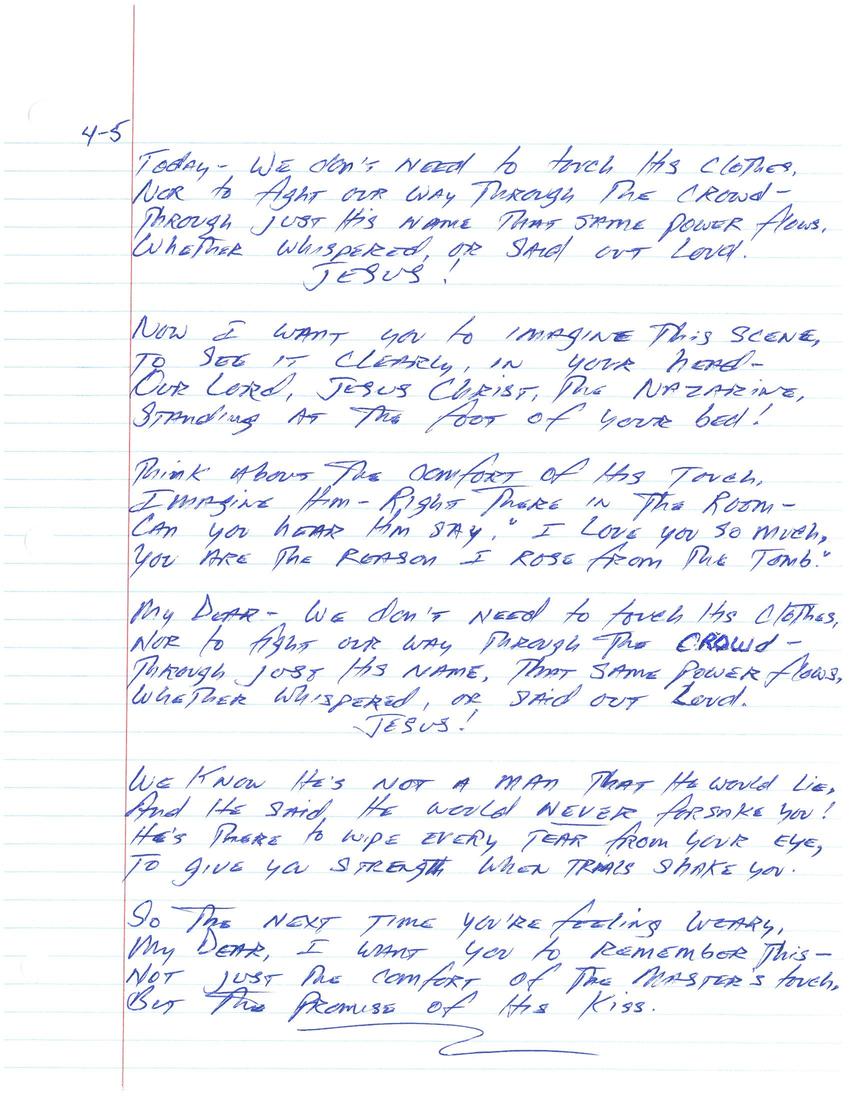 4-5
Today - We don't need to touch His clothes,
Nor to fight our way through the crowd -
Through just His name that same power flows,
Whether whispered, or said out loud.
JESUS!
Now I want you to imagine this scene,
To see it clearly, in your head -
Our Lord, Jesus Christ, the Nazarine,
Standing at the foot of your bed!
Think about the comfort of His touch,
Imagine Him - Right there in the room -
Can you hear Him say, "I love you so much,
You are the reason I rose from the tomb."
My Dear - We don't need to touch His clothes,
Nor to fight our way through the crowd -
Through just His name, that same power flows,
Whether whispered, or said out loud.
JESUS!
We know He's not a man that He would lie,
And He said He would never forsake you!
He's there to wipe every tear from your eye,
To give you strength when trials shake you.
So the next time you're feeling weary,
My Dear, I want you to remember this -
Not just the comfort of the Master's touch,
But the promise of His kiss.